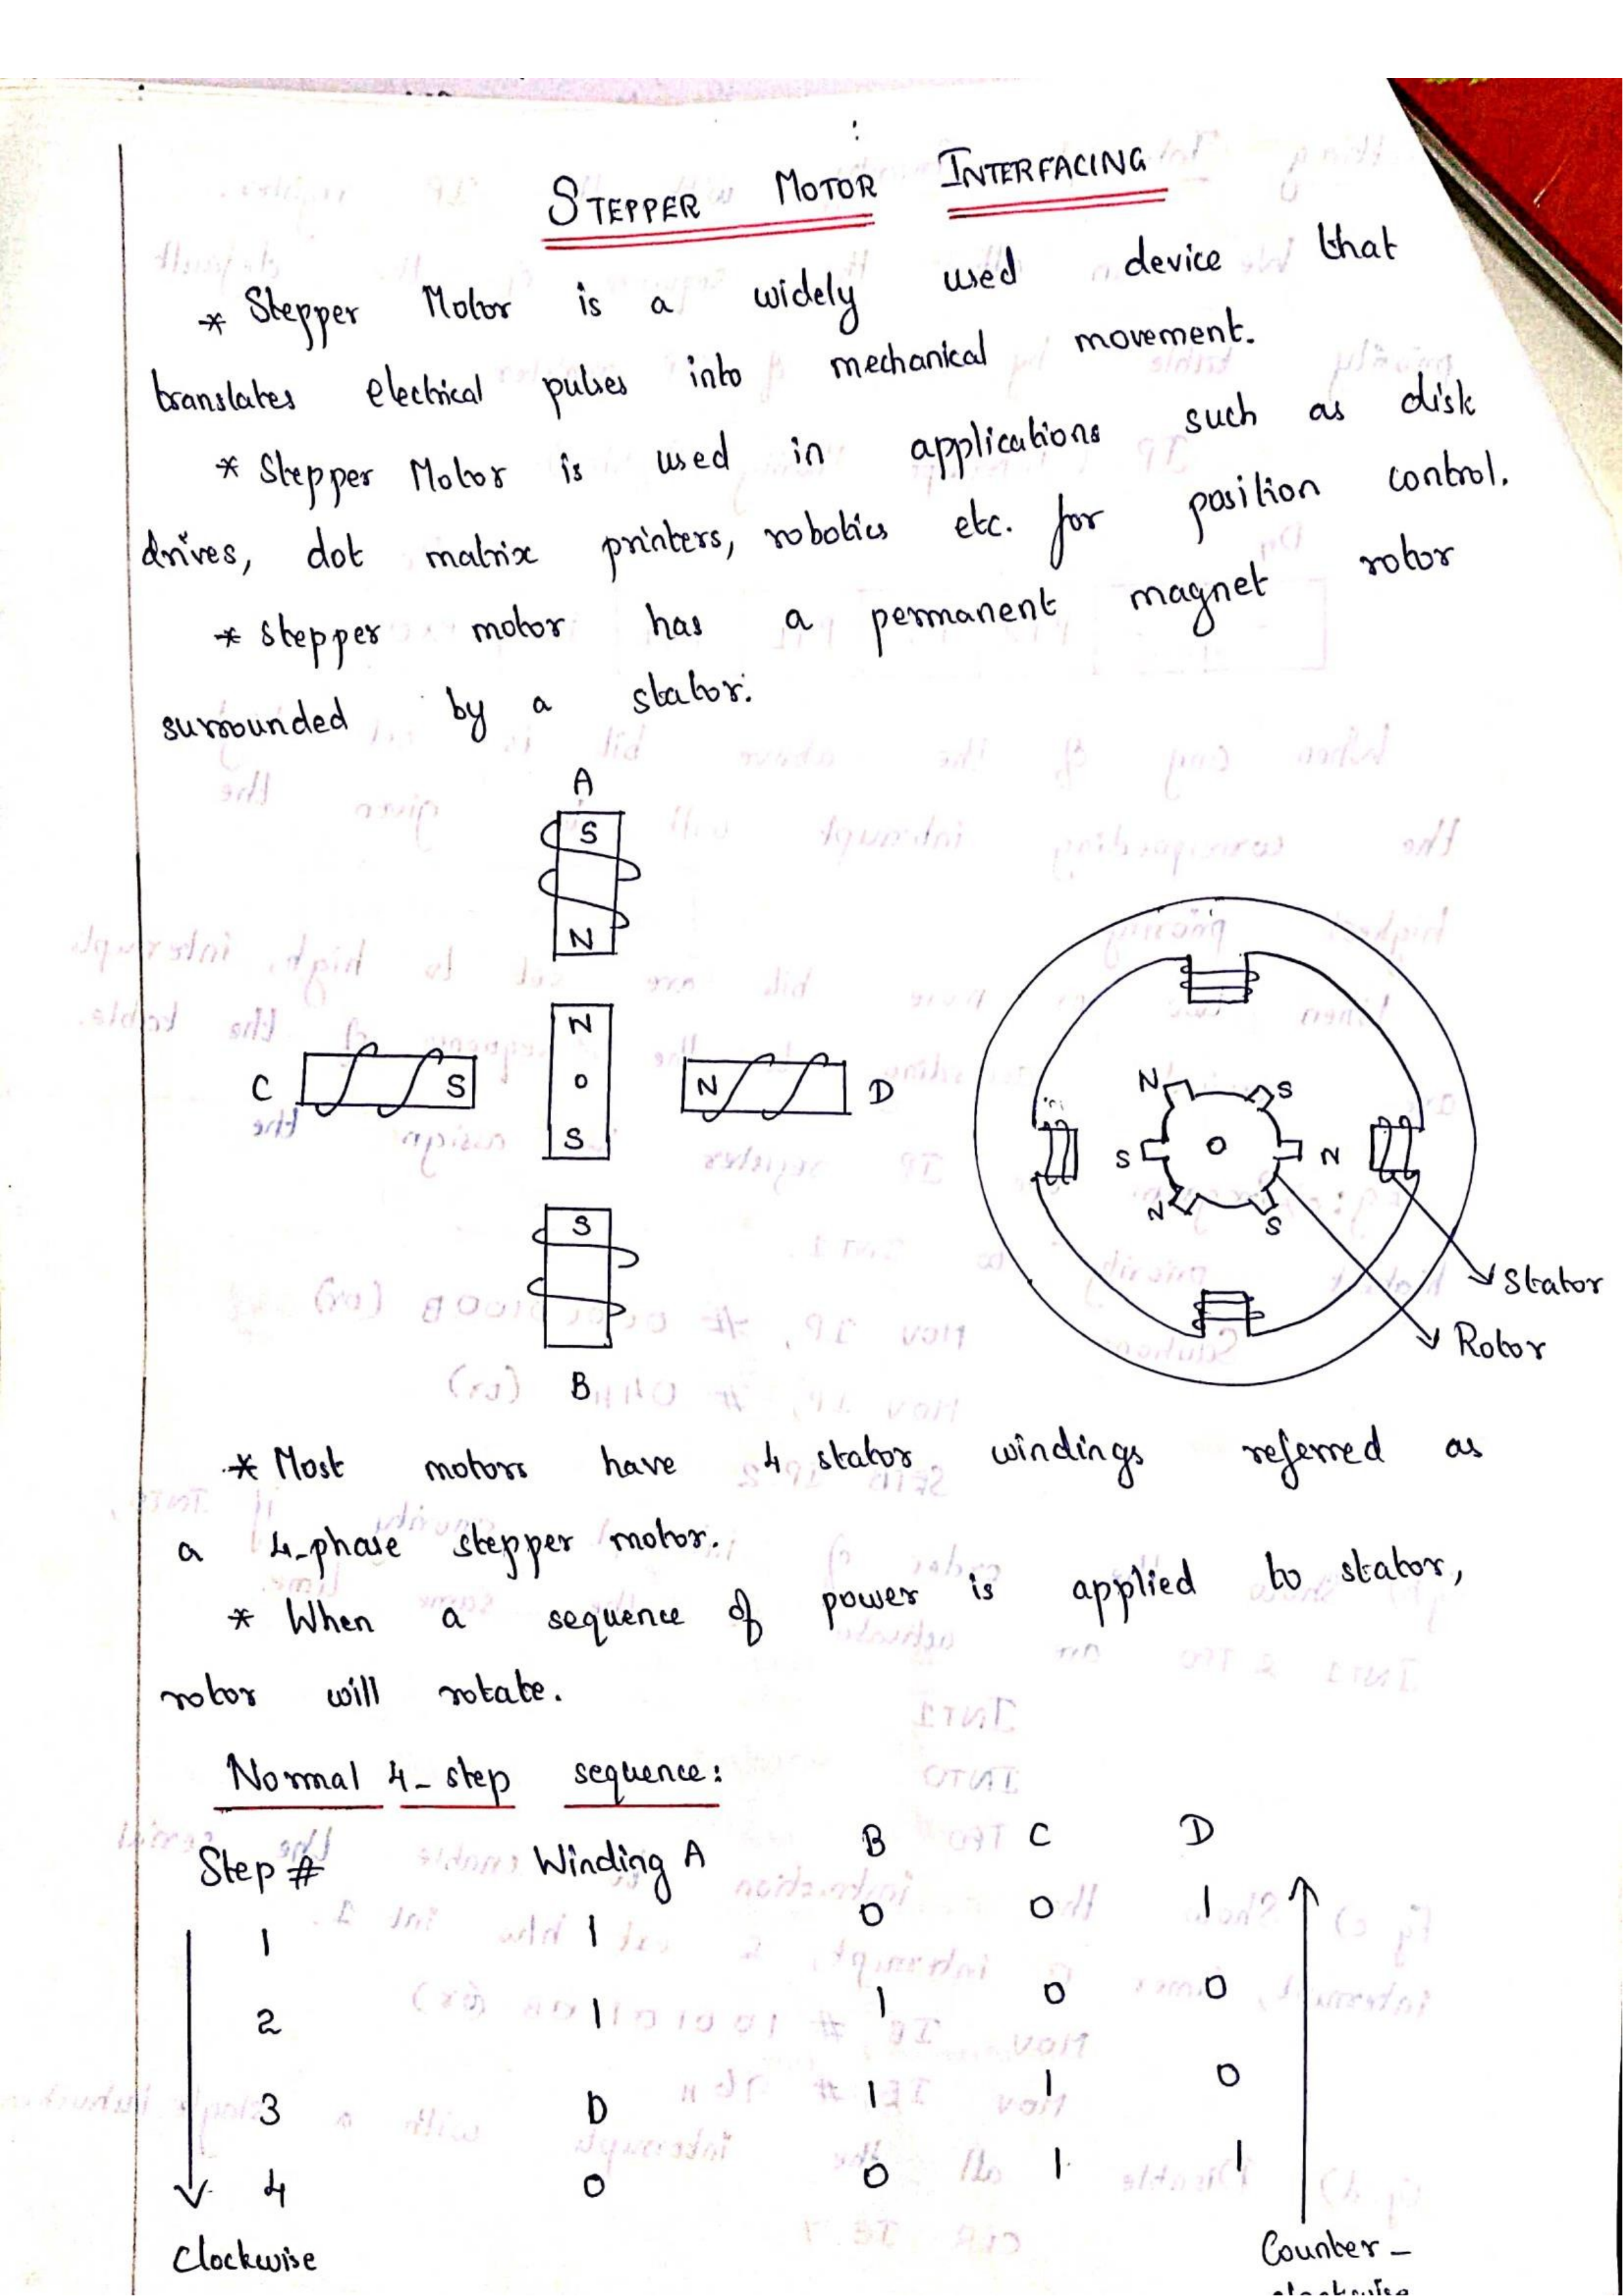 STEPPER MOTOR INTERFACING
* Stepper Motor is a widely used device that
translates electrical pulses into mechanical movement.
* Stepper Motor is used in applications such as disk
drives, dot matrix printers, robotics etc. for position control.
* stepper motor has a permanent magnet rotor
surrounded by a stator.
A
S
N
N
O
S
C
S
N
D
S
B
N S
S O N
N S
Stator
Rotor
* Most motors have 4 stator windings referred as
a 4-phase stepper motor.
* When a sequence of power is applied to stator,
rotor will rotate.
Normal 4-step sequence:
Step # Winding A B C D
1 1 0 0 1
2 1 1 0 0
3 0 1 1 0
4 0 0 1 1
Clockwise
Counter-
clockwise